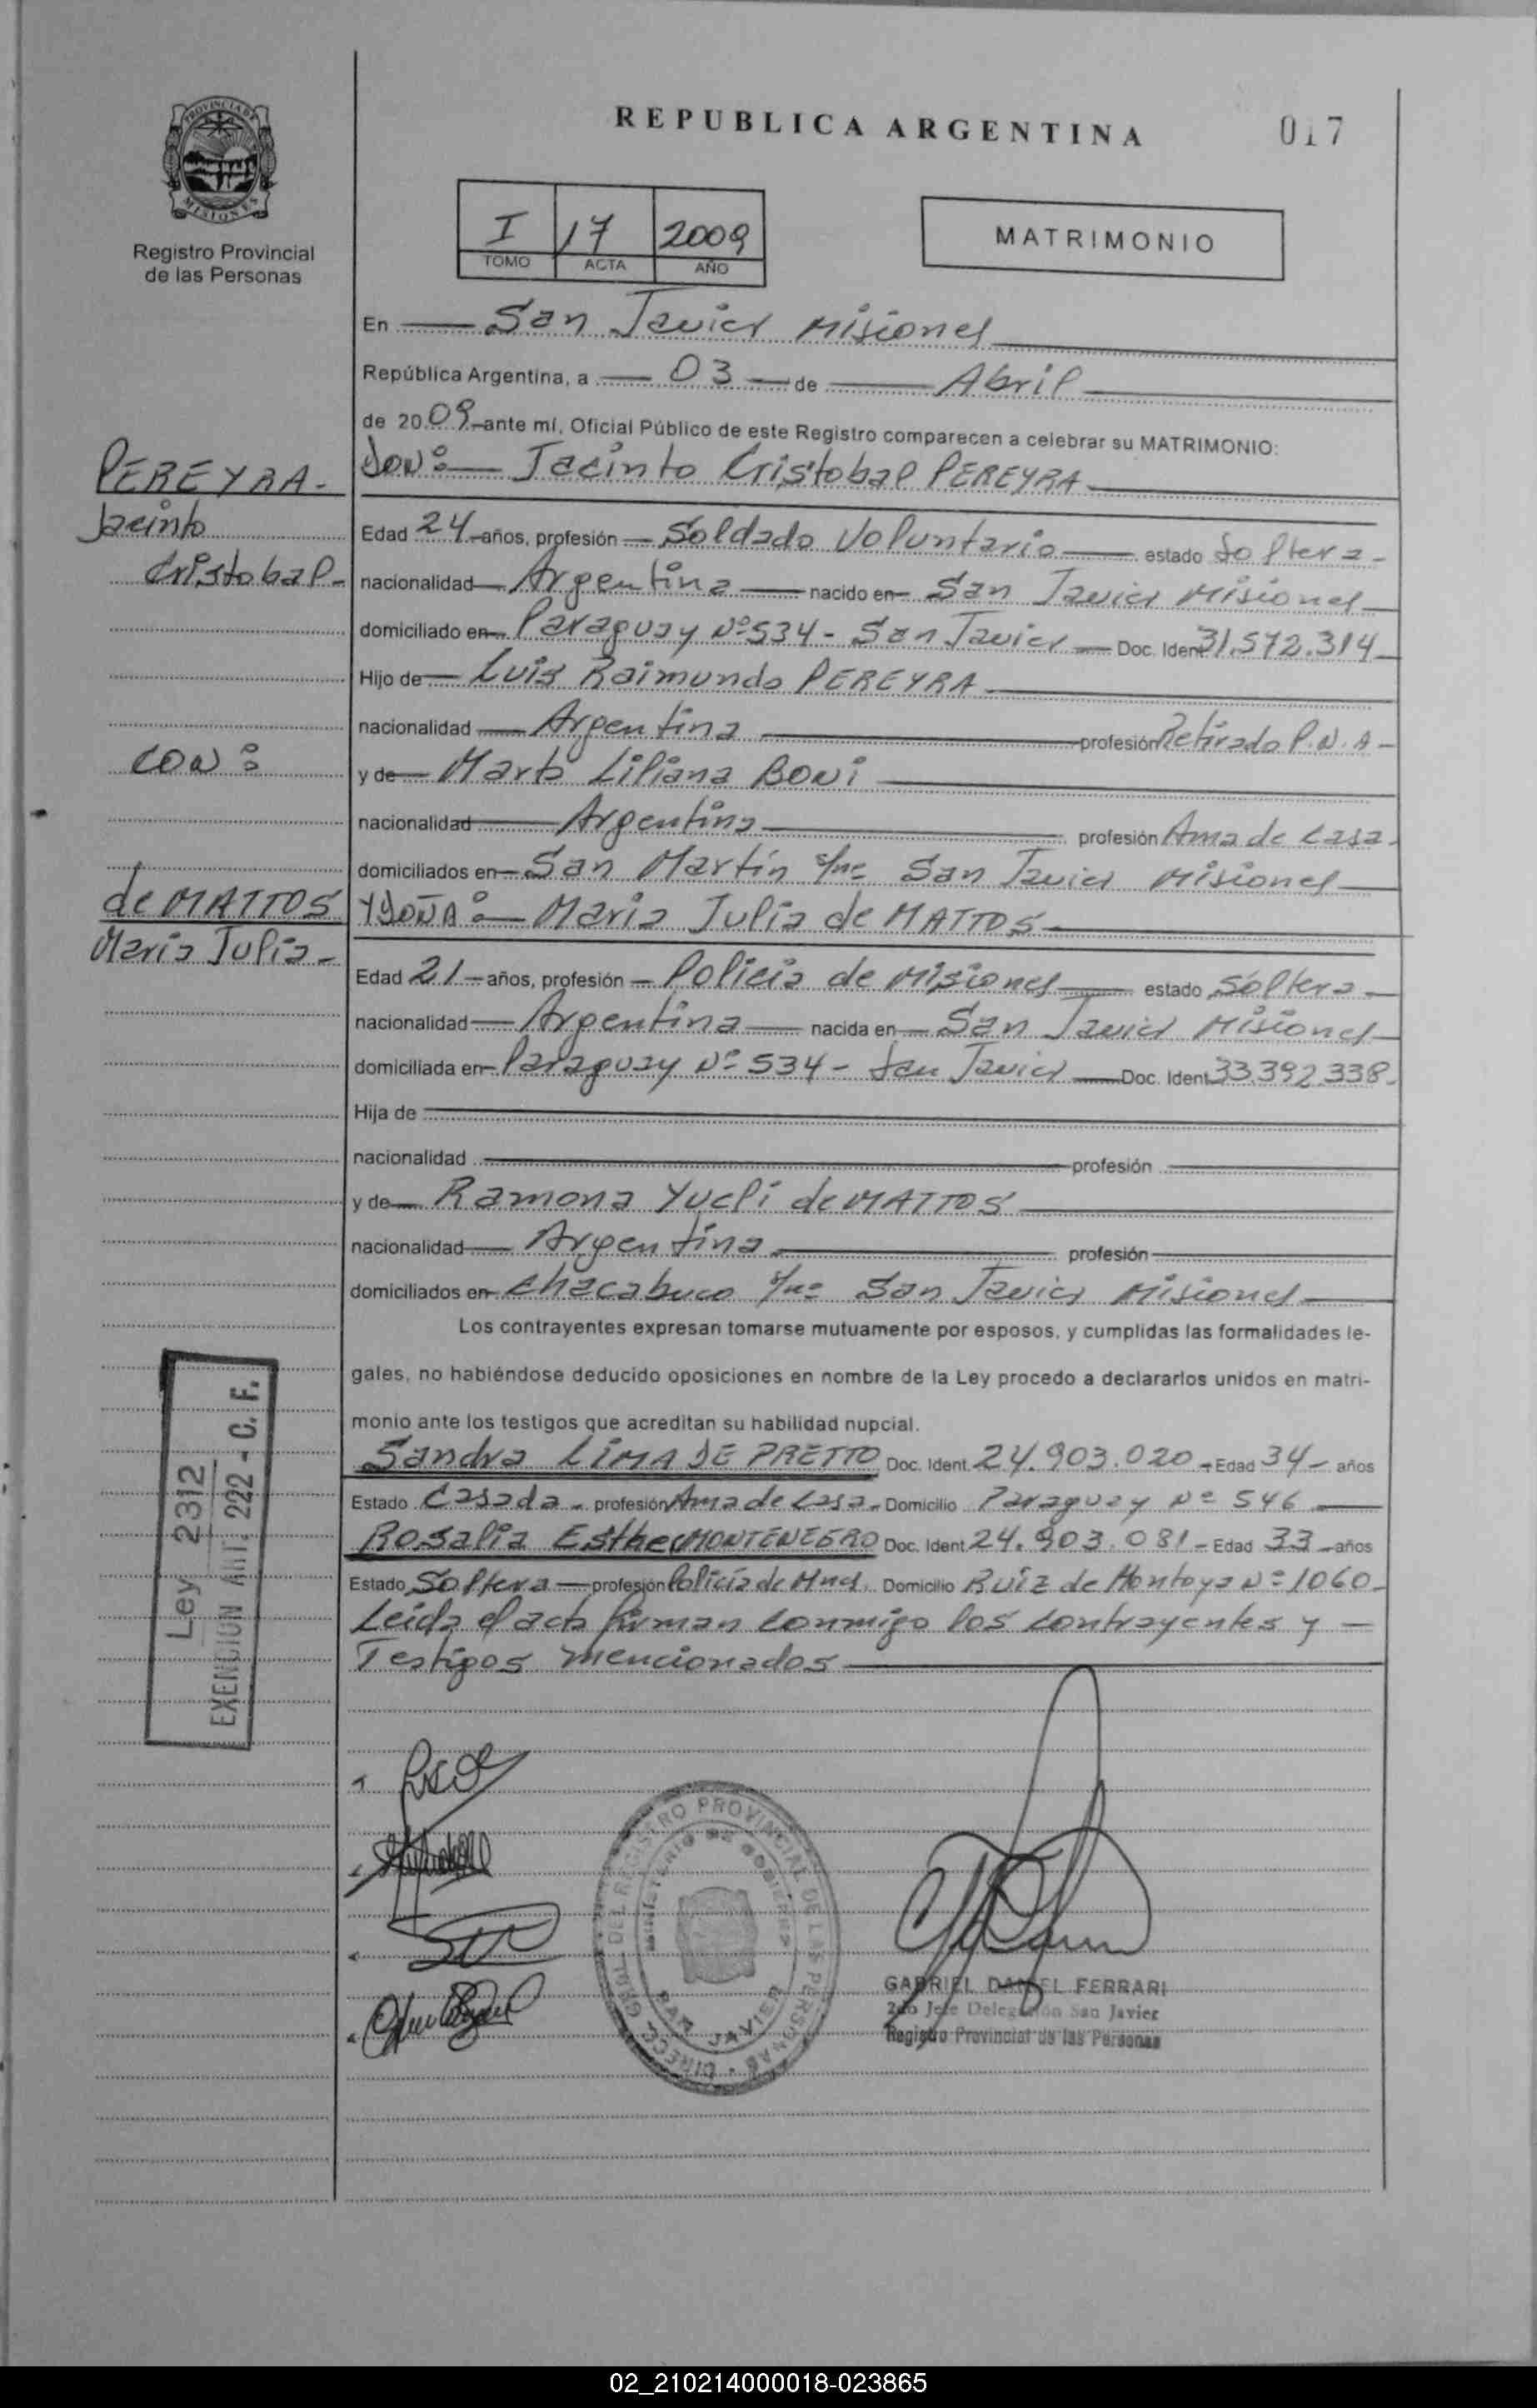 REPUBLICA ARGENTINA
017
PROVINCIA DE
MISIONES
Registro Provincial
de las Personas
I 17 2009
TOMO ACTA AÑO
MATRIMONIO
En San Javier Misiones
República Argentina, a 03 de Abril
de 2009 ante mí, Oficial Público de este Registro comparecen a celebrar su MATRIMONIO:
DON: Jacinto Cristobal PEREYRA
PEREYRA-
Jacinto
Cristobal-
Edad 24 años, profesión Soldado Voluntario estado Soltera-
nacionalidad Argentina nacido en San Javier Misiones
domiciliado en Paraguay Nº534- San Javier Doc. Ident 31.572.314
Hijo de Luis Raimundo PEREYRA
nacionalidad Argentina profesión Retirado P.N.A-
CON:
y de Marta Liliana BONi
nacionalidad Argentina profesión Ama de Casa-
domiciliados en San Martín s/nº San Javier Misiones
de MATTOS
Maria Julia-
Y DOÑA: Maria Julia de MATTOS
Edad 21 años, profesión Policia de Misiones estado Soltera
nacionalidad Argentina nacida en San Javier Misiones
domiciliada en Paraguay Nº 534- San Javier Doc. Ident 33.392.338-
Hija de
nacionalidad profesión
y de Ramona Yucli de MATTOS
nacionalidad Argentina profesión
domiciliados en Chacabuco s/nº San Javier Misiones
Los contrayentes expresan tomarse mutuamente por esposos, y cumplidas las formalidades le-
gales, no habiéndose deducido oposiciones en nombre de la Ley procedo a declararlos unidos en matri-
monio ante los testigos que acreditan su habilidad nupcial.
Sandra LIMA DE PRETTO Doc. Ident. 24.903.020- Edad 34- años
Estado Casada- profesión Ama de Casa- Domicilio Paraguay Nº 546
Rosalia Esther MONTENEGRO Doc. Ident 24.903.081- Edad 33 años
Estado Soltera profesión Policía de Mnes. Domicilio Ruiz de Montoya Nº 1060-
Leida el acta firman conmigo los contrayentes y
Testigos mencionados
Ley 2312
EXENCION ART. 222 - C. F.
DIRECC. GRAL. DEL REGISTRO PROVINCIAL DE LAS PERSONAS
MINISTERIO DE GOBIERNO
SAN JAVIER
GABRIEL DANIEL FERRARI
2do Jefe Delegación San Javier
Registro Provincial de las Personas
02_210214000018-023865